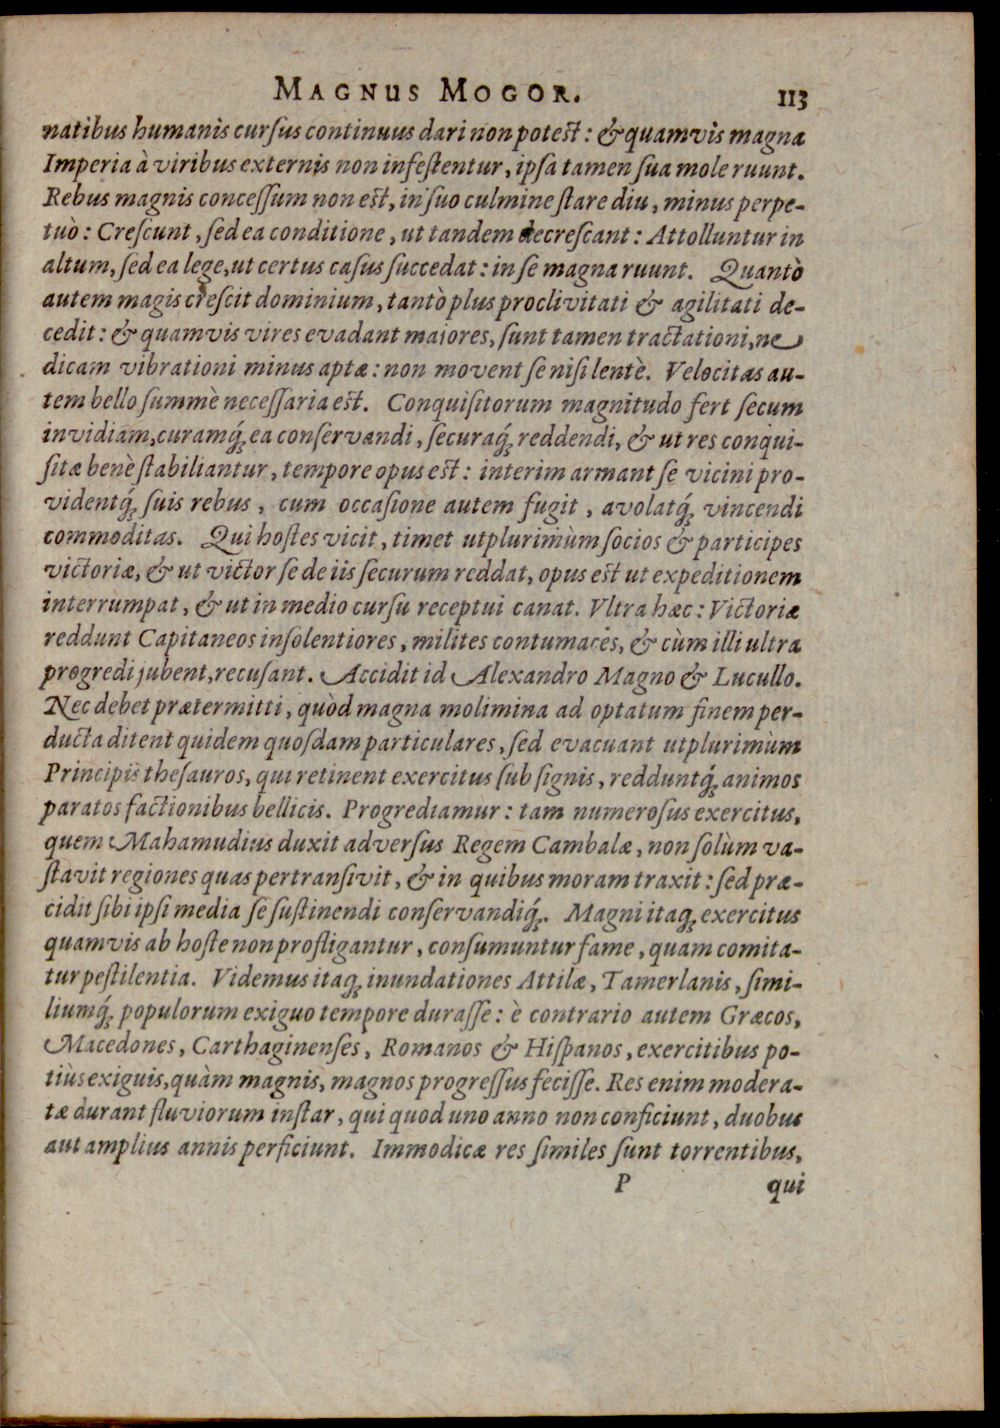 MAGNUS MOGOR. 113
natibus humanis cursus continuus dari non potest: & quamvis magna
Imperia à viribus externis non infestentur, ipsa tamen sua mole ruunt.
Rebus magnis concessum non est, in suo culmine stare diu, minus perpe-
tuò: Crescunt, sed ea conditione, ut tandem decrescant: Attolluntur in
altum, sed ea lege, ut certus casus succedat: in se magna ruunt. Quantò
autem magis crescit dominium, tantò plus proclivitati & agilitati de-
cedit: & quamvis vires evadant maiores, sunt tamen tractationi, ne
dicam vibrationi minus aptæ: non movent se nisi lentè. Velocitas au-
tem bello summè necessaria est. Conquisitorum magnitudo fert secum
invidiam, curamq́; ea conservandi, securaq́; reddendi, & ut res conqui-
sitæ benè stabiliantur, tempore opus est: interim armant se vicini pro-
videntq́; suis rebus, cum occasione autem fugit, avolatq́; vincendi
commoditas. Qui hostes vicit, timet utplurimùm socios & participes
victoriæ, & ut victor se de iis securum reddat, opus est ut expeditionem
interrumpat, & ut in medio cursu receptui canat. Vltra hæc: Victoriæ
reddunt Capitaneos insolentiores, milites contumaces, & cùm illi ultra
progredi jubent, recusant. Accidit id Alexandro Magno & Lucullo.
Nec debet prætermitti, quòd magna molimina ad optatum finem per-
ducta ditent quidem quosdam particulares, sed evacuant utplurimùm
Principis thesauros, qui retinent exercitus sub signis, redduntq́; animos
paratos factionibus bellicis. Progrediamur: tam numerosus exercitus,
quem Mahamudius duxit adversus Regem Cambalæ, non solùm va-
stavit regiones quas pertransivit, & in quibus moram traxit: sed præ-
cidit sibi ipsi media se sustinendi conservandiq́;. Magni itaq; exercitus
quamvis ab hoste non profligantur, consumuntur fame, quam comita-
tur pestilentia. Videmus itaq; inundationes Attilæ, Tamerlanis, simi-
liumq́; populorum exiguo tempore durasse: è contrario autem Græcos,
Macedones, Carthaginenses, Romanos & Hispanos, exercitibus po-
tiùs exiguis, quàm magnis, magnos progressus fecisse. Res enim modera-
tæ durant fluviorum instar, qui quod uno anno non conficiunt, duobus
aut amplius annis perficiunt. Immodicæ res similes sunt torrentibus,
P qui